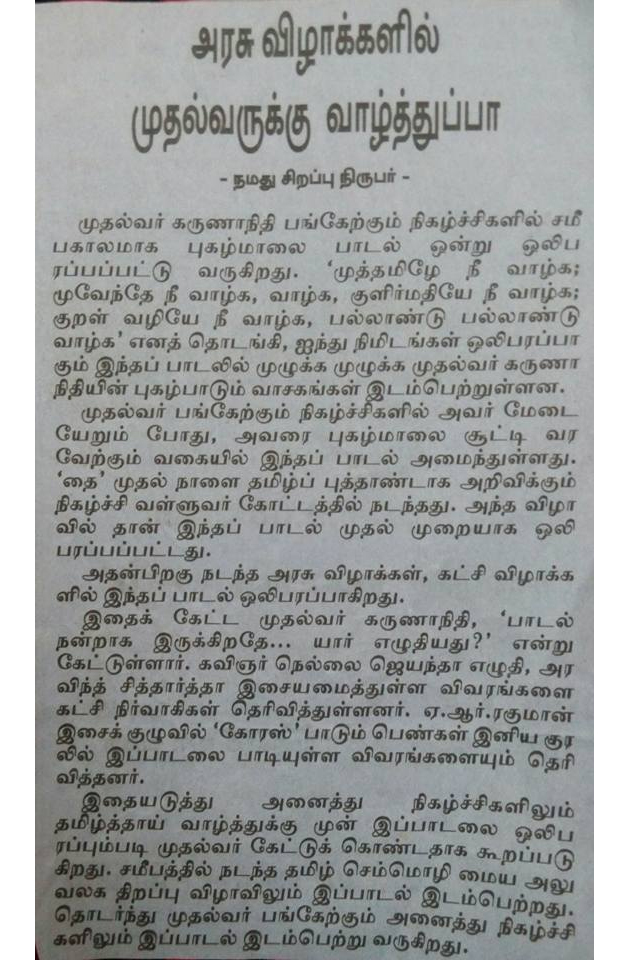 அரசு விழாக்களில்
முதல்வருக்கு வாழ்த்துப்பா
- நமது சிறப்பு நிருபர் -
முதல்வர் கருணாநிதி பங்கேற்கும் நிகழ்ச்சிகளில் சமீ
பகாலமாக புகழ்மாலை பாடல் ஒன்று ஒலிப
ரப்பப்பட்டு வருகிறது. ‘முத்தமிழே நீ வாழ்க;
மூவேந்தே நீ வாழ்க, வாழ்க, குளிர்மதியே நீ வாழ்க;
குறள் வழியே நீ வாழ்க, பல்லாண்டு பல்லாண்டு
வாழ்க’ எனத் தொடங்கி, ஐந்து நிமிடங்கள் ஒலிபரப்பா
கும் இந்தப் பாடலில் முழுக்க முழுக்க முதல்வர் கருணா
நிதியின் புகழ்பாடும் வாசகங்கள் இடம்பெற்றுள்ளன.
முதல்வர் பங்கேற்கும் நிகழ்ச்சிகளில் அவர் மேடை
யேறும் போது, அவரை புகழ்மாலை சூட்டி வர
வேற்கும் வகையில் இந்தப் பாடல் அமைந்துள்ளது.
‘தை’ முதல் நாளை தமிழ்ப் புத்தாண்டாக அறிவிக்கும்
நிகழ்ச்சி வள்ளுவர் கோட்டத்தில் நடந்தது. அந்த விழா
வில் தான் இந்தப் பாடல் முதல் முறையாக ஒலி
பரப்பப்பட்டது.
அதன்பிறகு நடந்த அரசு விழாக்கள், கட்சி விழாக்க
ளில் இந்தப் பாடல் ஒலிபரப்பாகிறது.
இதைக் கேட்ட முதல்வர் கருணாநிதி, ‘பாடல்
நன்றாக இருக்கிறதே... யார் எழுதியது?’ என்று
கேட்டுள்ளார். கவிஞர் நெல்லை ஜெயந்தா எழுதி, அர
விந்த் சித்தார்த்தா இசையமைத்துள்ள விவரங்களை
கட்சி நிர்வாகிகள் தெரிவித்துள்ளனர். ஏ.ஆர்.ரகுமான்
இசைக் குழுவில் ‘கோரஸ்’ பாடும் பெண்கள் இனிய குர
லில் இப்பாடலை பாடியுள்ள விவரங்களையும் தெரி
வித்தனர்.
இதையடுத்து அனைத்து நிகழ்ச்சிகளிலும்
தமிழ்த்தாய் வாழ்த்துக்கு முன் இப்பாடலை ஒலிப
ரப்பும்படி முதல்வர் கேட்டுக் கொண்டதாக கூறப்படு
கிறது. சமீபத்தில் நடந்த தமிழ் செம்மொழி மைய அலு
வலக திறப்பு விழாவிலும் இப்பாடல் இடம்பெற்றது.
தொடர்ந்து முதல்வர் பங்கேற்கும் அனைத்து நிகழ்ச்சி
களிலும் இப்பாடல் இடம்பெற்று வருகிறது.